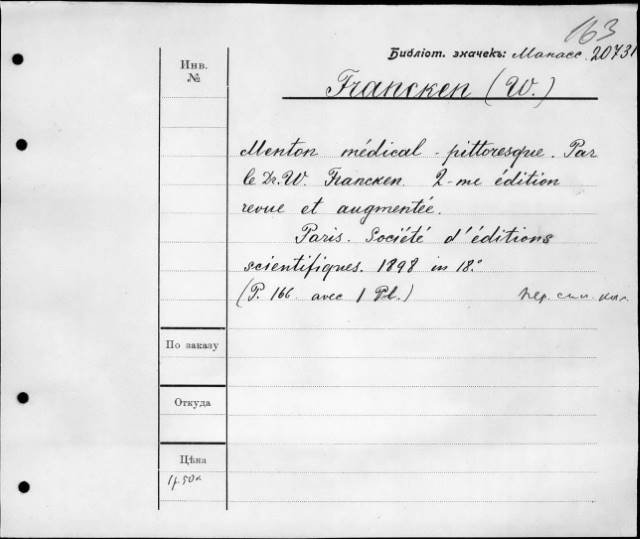 163
Библіот. значекъ: Манасс. 20731
Инв. №
Francken (W.)
Menton médical-pittoresque. Par
le Dr. W. Francken. 2-me édition
revue et augmentée.
Paris. Société d'éditions
scientifiques. 1898 in 18.°
(P. 166 avec 1 Pl.)
пер. син. кол.
По заказу
Откуда
Цѣна